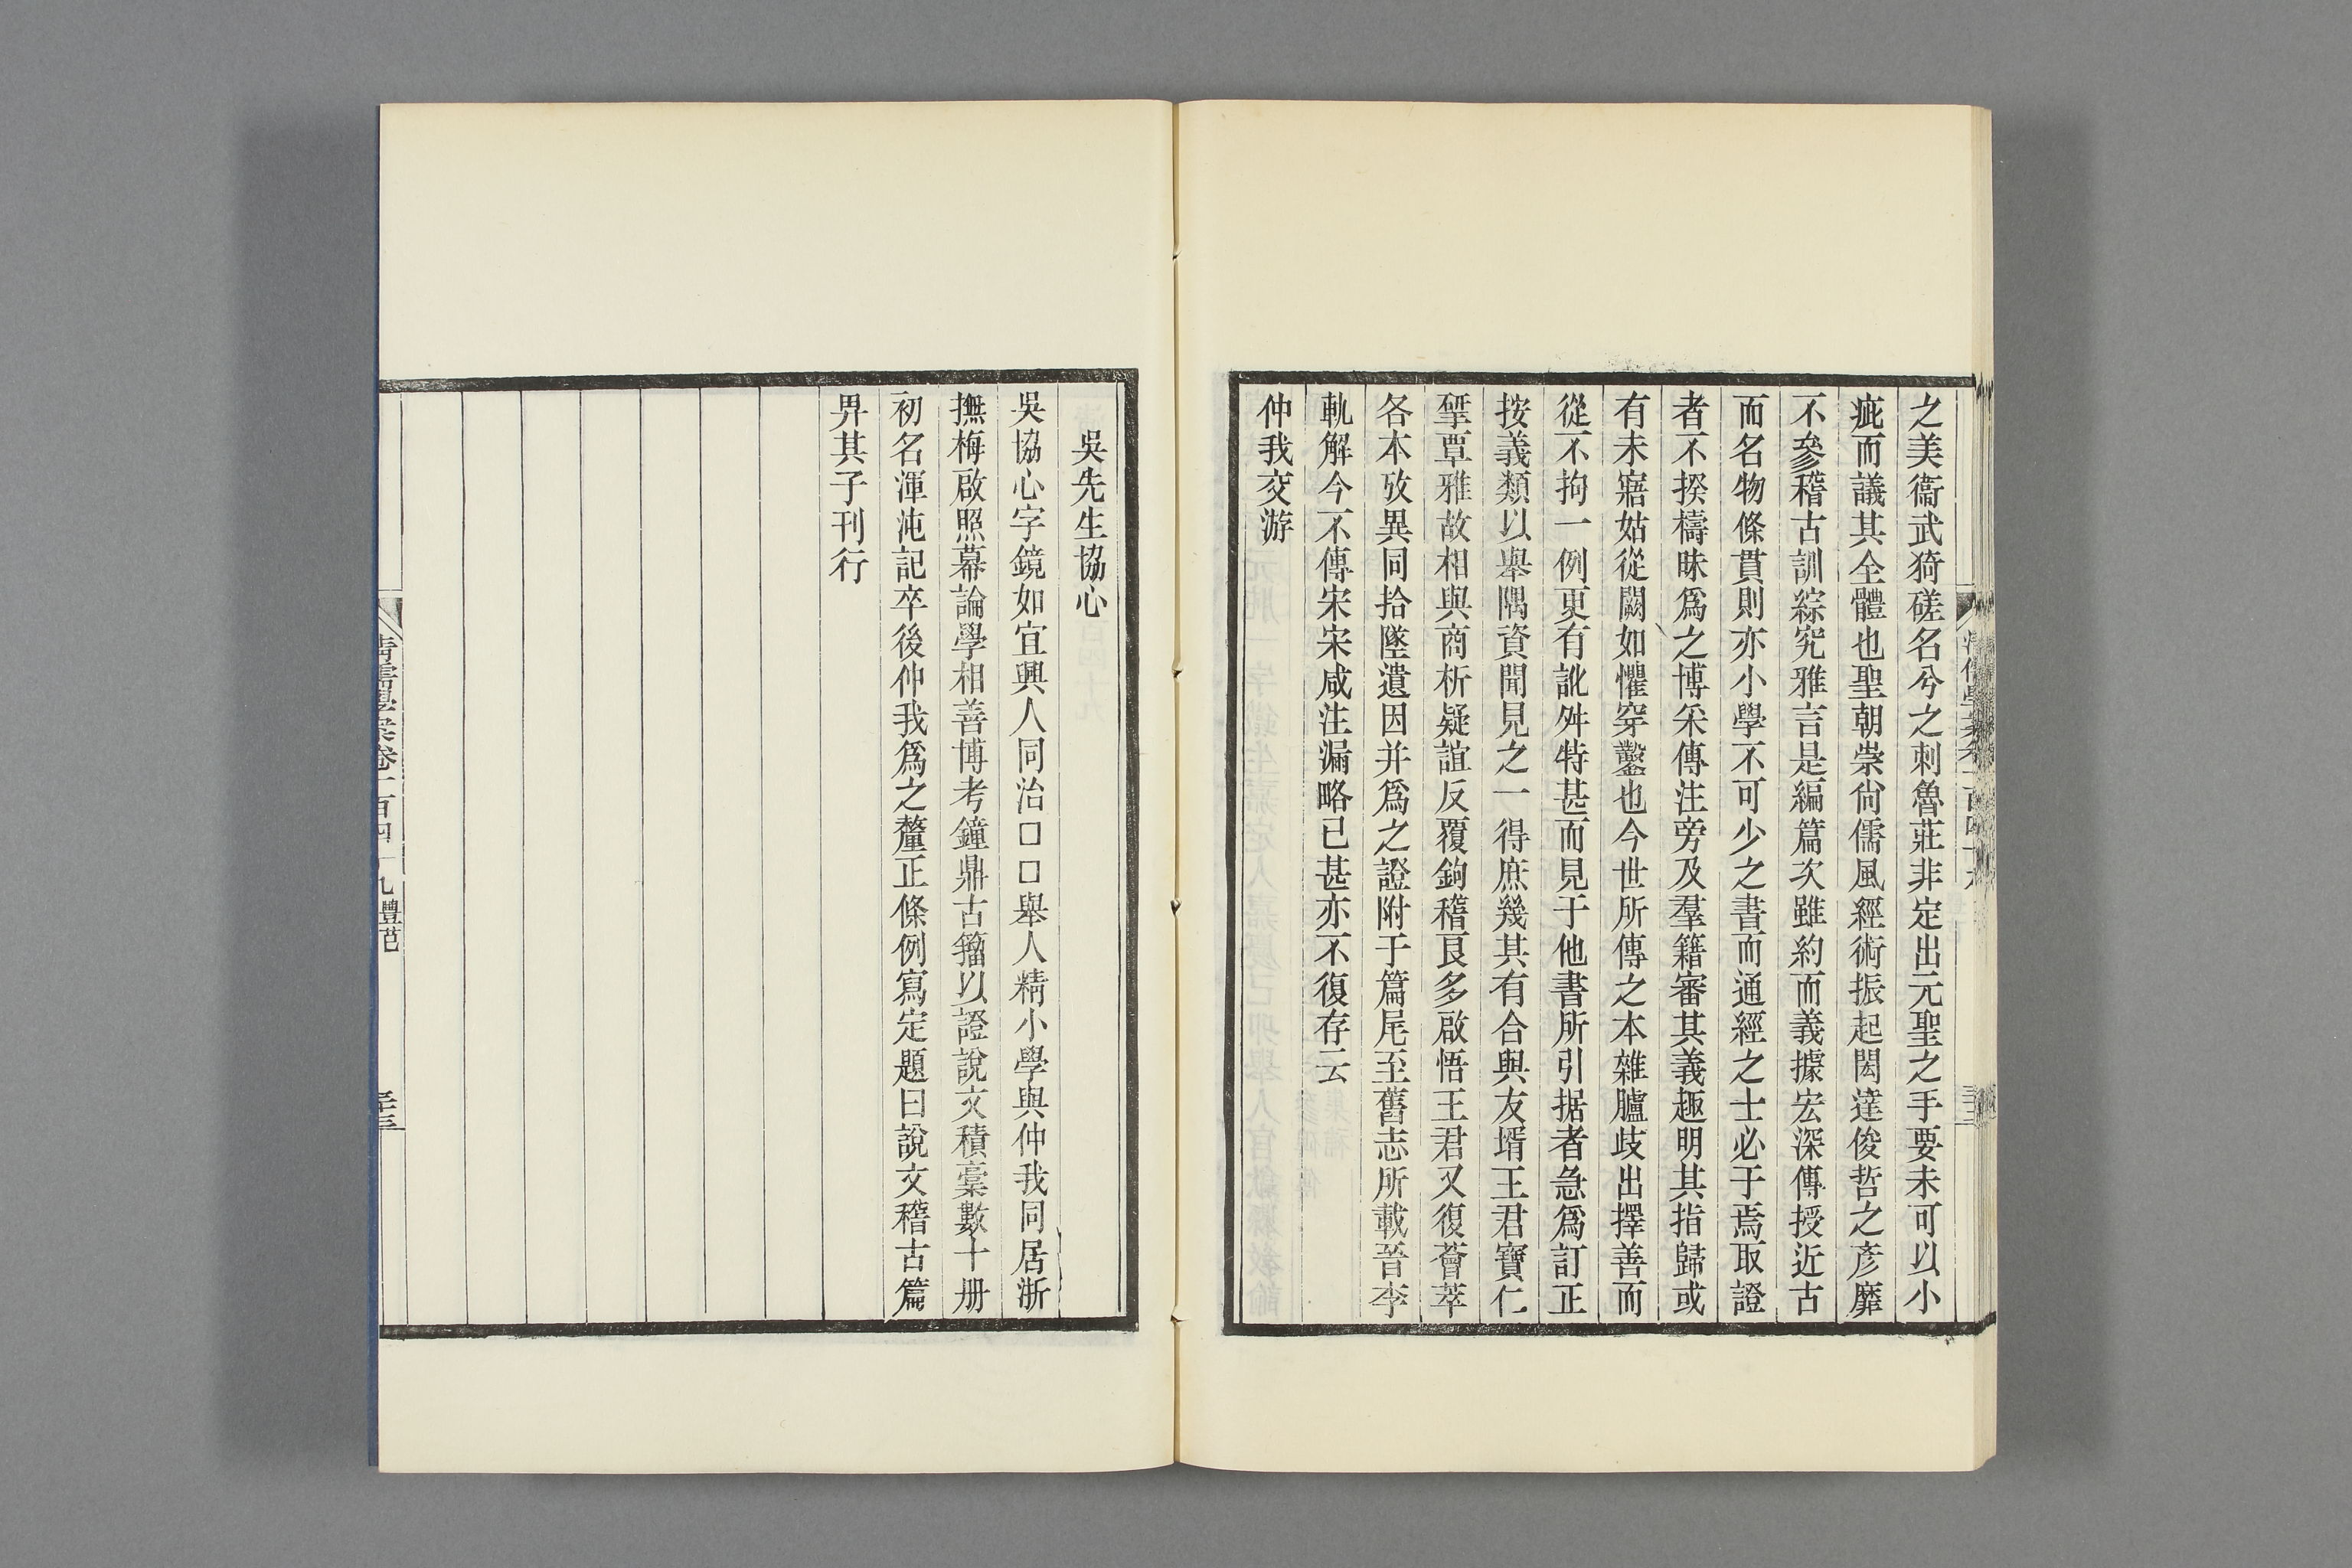 之美衞武猗磋名兮之刺魯莊非定出元聖之手要未可以小
疵而議其全體也聖朝崇尙儒風經術振起閎達俊哲之彥靡
不參稽古訓綜究雅言是編篇次雖約而義據宏深傳授近古
而名物條貫則亦小學不可少之書而通經之士必于焉取證
者不揆檮昧爲之博采傳注旁及羣籍審其義趣明其指歸或
有未寤姑從闕如懼穿鑿也今世所傳之本雜臚歧出擇善而
從不拘一例更有訛舛特甚而見于他書所引据者急爲訂正
按義類以舉隅資聞見之一得庶幾其有合與友壻王君寶仁
揅覃雅故相與商析疑誼反覆鉤稽良多啟悟王君又復薈萃
各本攷異同拾墜遺因并爲之證附于篇尾至舊志所載晉李
軌解今不傳宋宋咸注漏略已甚亦不復存云
仲我交游
吳先生協心
吳協心字鏡如宜興人同治□□舉人精小學與仲我同居浙
撫梅啟照幕論學相善博考鐘鼎古籒以證說文積稾數十册
初名渾沌記卒後仲我爲之釐正條例寫定題曰說文稽古篇
畀其子刊行
清儒學案卷一百四十九 禮范